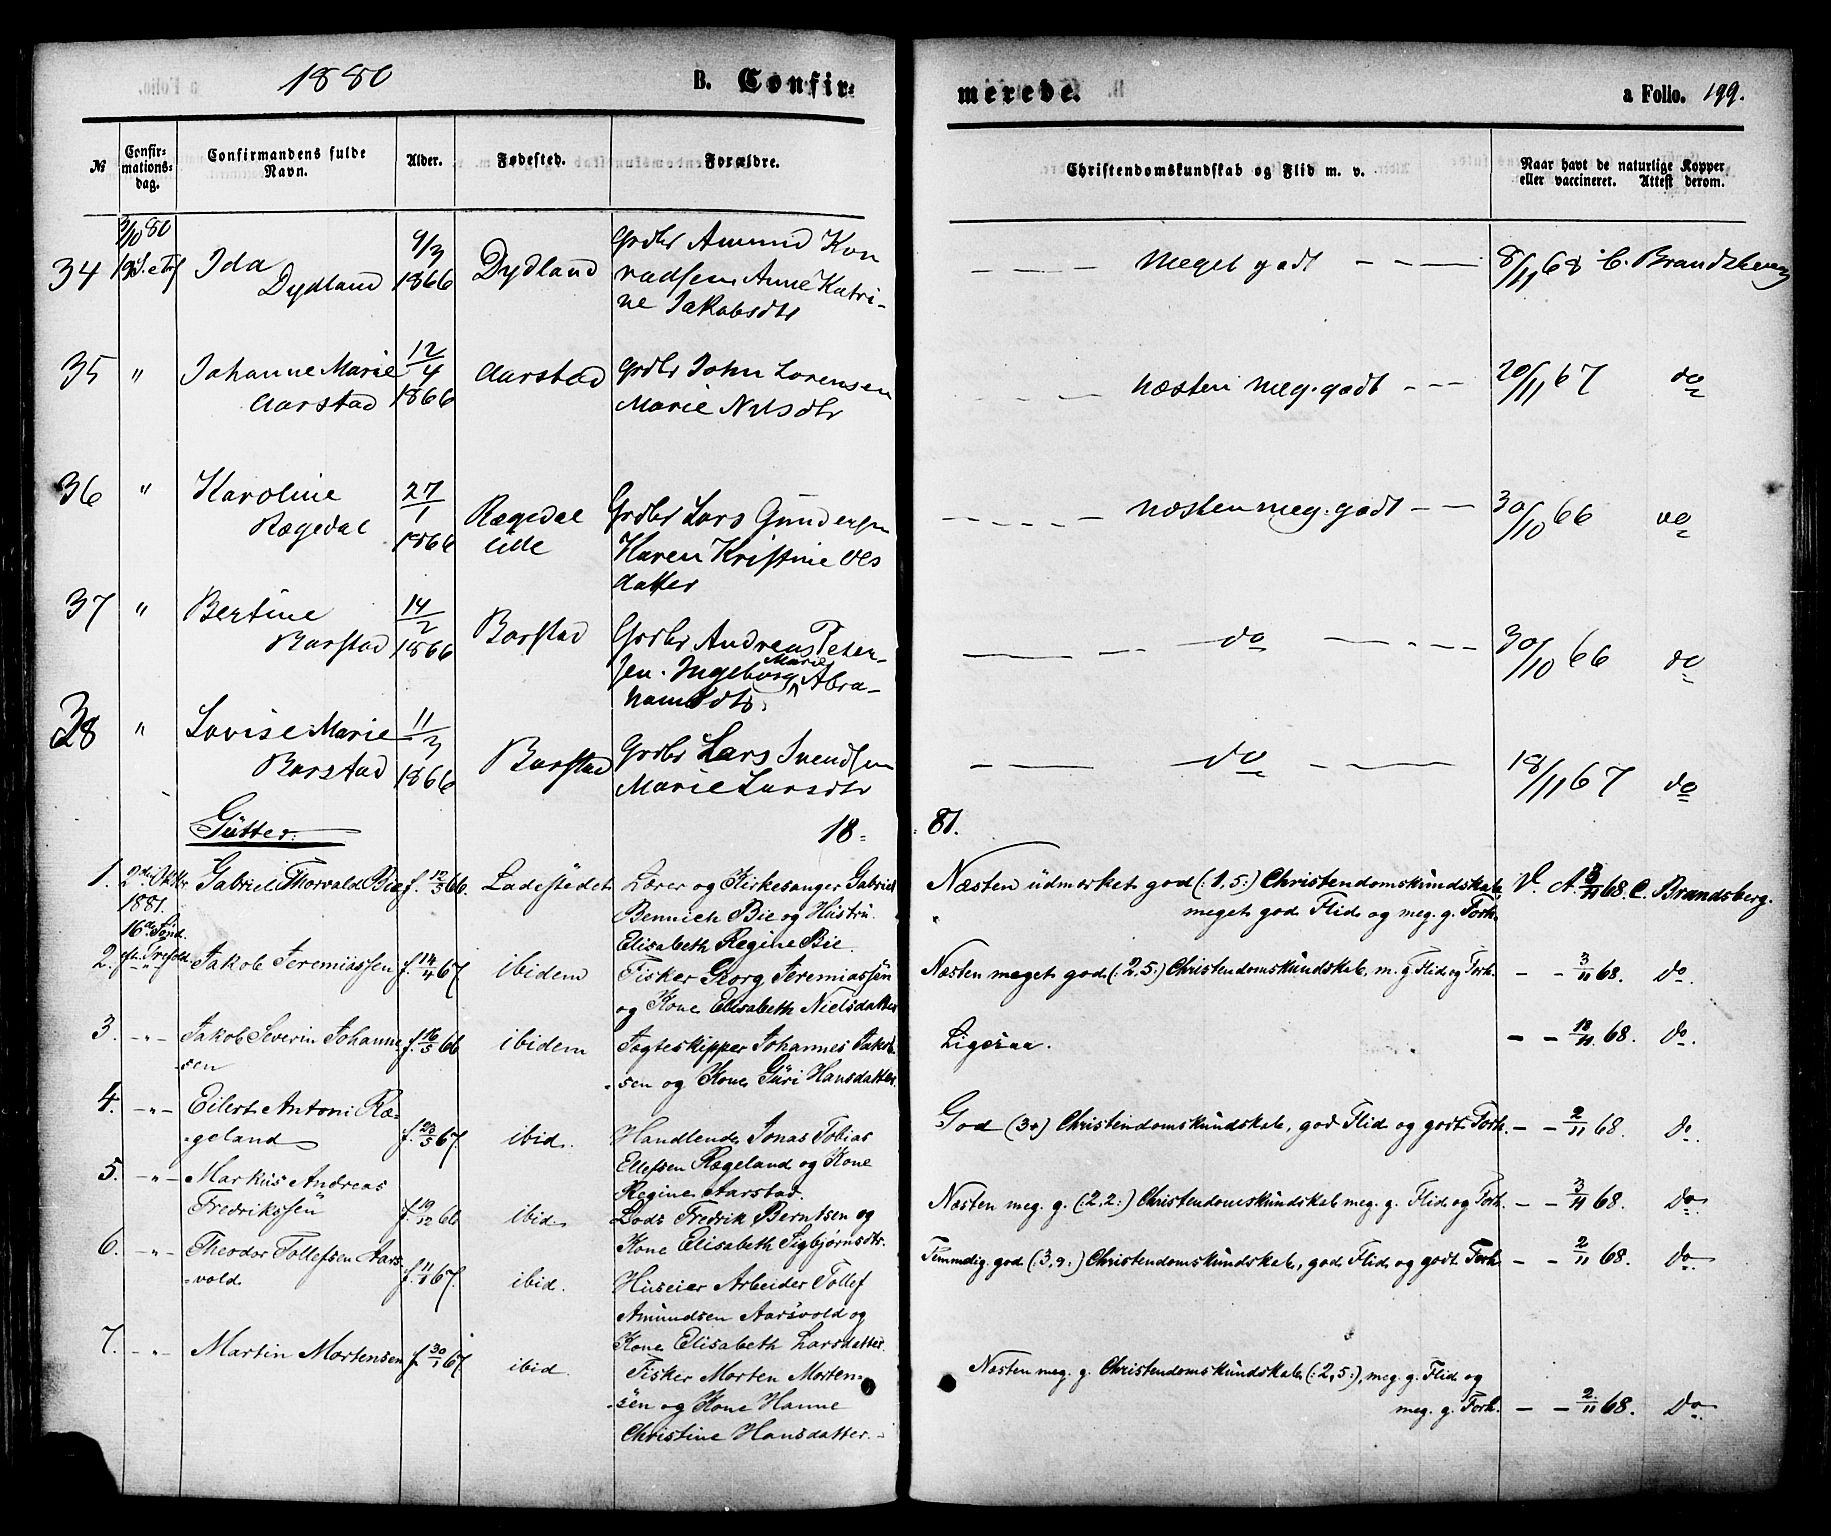 1880 B. Confir-
merede. a Folio. 199.
№ Confir-
mations-
dag. Confirmandens fulde
Navn. Alder. Fødested. Forældre.
Christendomskundskab og Flid m. v. Naar havt de naturlige Kopper
eller vaccineret. Attest derom.
34 3/10 80
19 S. e Trf Ida
Dydland 9/3
1866 Dydland Grdbr Amund Kon
radsen Anne Katri-
ne Jakobsdtr
Meget godt 8/11 68 C. Brandsberg
35 " Johanne Marie
Aarstad 12/4
1866 Aarstad Grdbr John Lorensen
Marie Nilsdtr
næsten meg. godt 20/11 67 do
36 " Karoline
Rægedal 27/1
1866 Rægedal
lille Grdbr Lars Gundersen
Karen Kristine Ols
datter
næsten meg. godt 30/10 66 do
37 " Bertine
Barstad 14/2
1866 Barstad Grdbr Andreas Peter-
sen. Ingeborg Marie Abra-
hamsdtr.
do 30/10 66 do
38 " Lovise Marie
Barstad 11/3
1866 Barstad Grdbr Lars Svendsen
Marie Larsdtr
do 18/11 67 do
Gutter: 18-
81.
1. 2den Oktbr
1881.
16de Sønd.
eft. Trefold. Gabriel Thorvald Bie f. 12/5 66. Ladestedet Lærer og Kirkesanger Gabriel
Bennich Bie og Hustru
Elisabeth Regine Bie.
Næsten udmærket god (: 1,5 :) Christendomskundskab,
meget god Flid og meg. g. Forh. V. A. 3/11 68. C. Brandsberg.
2. -"- Jakob Jeremiassen f. 14/4 67 ibidem Fisker Georg Jeremiassen
og Kone Elisabeth Nielsdatter
Næsten meget god (: 2,5 :) Christendomskundskab, m. g. Flid og Forh. - - 3/11 68. Do.
3. -"- Jakob Severin Johanne-
-sen f. 16/5 66 ibidem Jagteskipper Johannes Jakob-
-sen og Kone Guri Hansdatter.
Ligesaa. - - 18/11 68. Do.
4. -"- Eilert Antoni Ræ-
-geland f. 23/5 67. ibid. Handlende Jonas Tobias
Ellefsen Rægeland og Kone
Regine Aarstad.
God (3+) Christendomskundskab, god Flid og godt Forh. - - 2/11 68. Do.
5. -"- Markus Andreas
Fredrikssen f. 19/12 66 ibid. Lods Fredrik Berntsen og
Kone Elisabeth Sigbjørnsdtr.
Næsten meg. g. (: 2,2 :) Christendomskundskab meg. g. Flid og Forh. - - 3/11 68. Do.
6. -"- Theodor Tollefsen Aars-
-vold f. 11/1 67. ibid. Huseier Arbeider Tollef
Amundsen Aarsvold og
Kone Elisabeth Larsdatter.
Temmelig god (: 3,9 :) Christendomskundskab, god Flid og godt Forh. - - 2/11 68. Do.
7. -"- Martin Mortensen f. 30/1 67 ibid. Fisker Morten Morten-
-sen og Kone Hanne
Christine Hansdatter.
Næsten meg. g. Christendomskundskab, (: 2,5 :), meg. g. Flid og
meg. g. Forh. - - 2/11 68. Do.